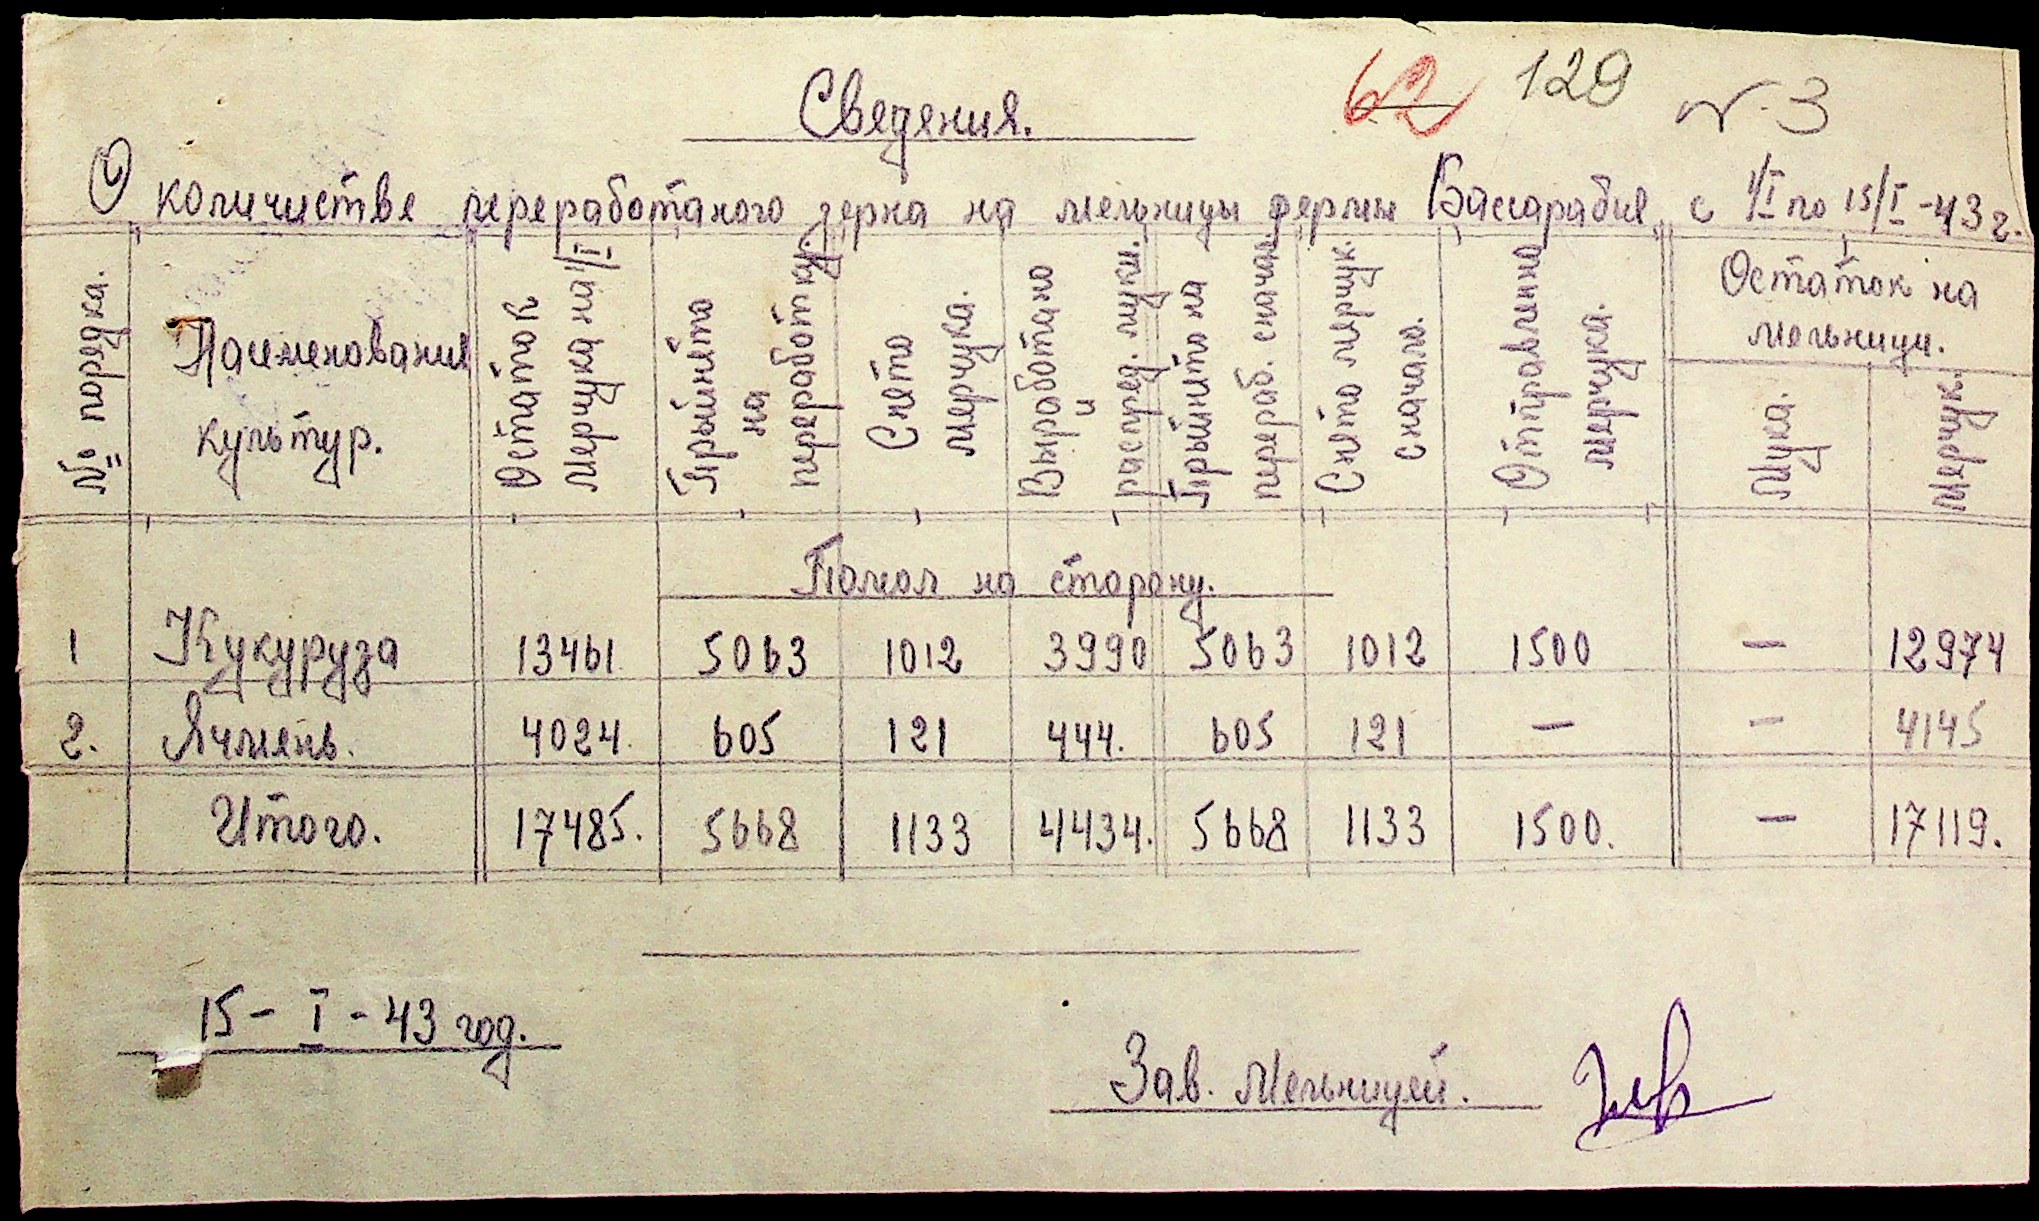 62 129 № 3
Сведения.
О количистве переработаного зерна на мельницы фермы Бассарабия с 1/I по 15/I -43 г.
№ порядка.
Наименования
культур.
Остаток
мерчука на 1/I
Прыйнято
на
переработку.
Снято
мерчука.
Выработано
и
распред. муки.
Прыйнято на
перераб. сначал.
Снято мерчук.
сначало.
Отправленно
мерчука.
Остаток на
мельници.
Мука.
Мерчук.
Помол на сторону.
1 Кукуруза 13461 5063 1012 3990 5063 1012 1500 — 12974
2. Ячмень. 4024. 605 121 444. 605 121 — — 4145
Итого. 17485. 5668 1133 4434. 5668 1133 1500. — 17119.
15 - I - 43 год.
Зав. Мельницей.